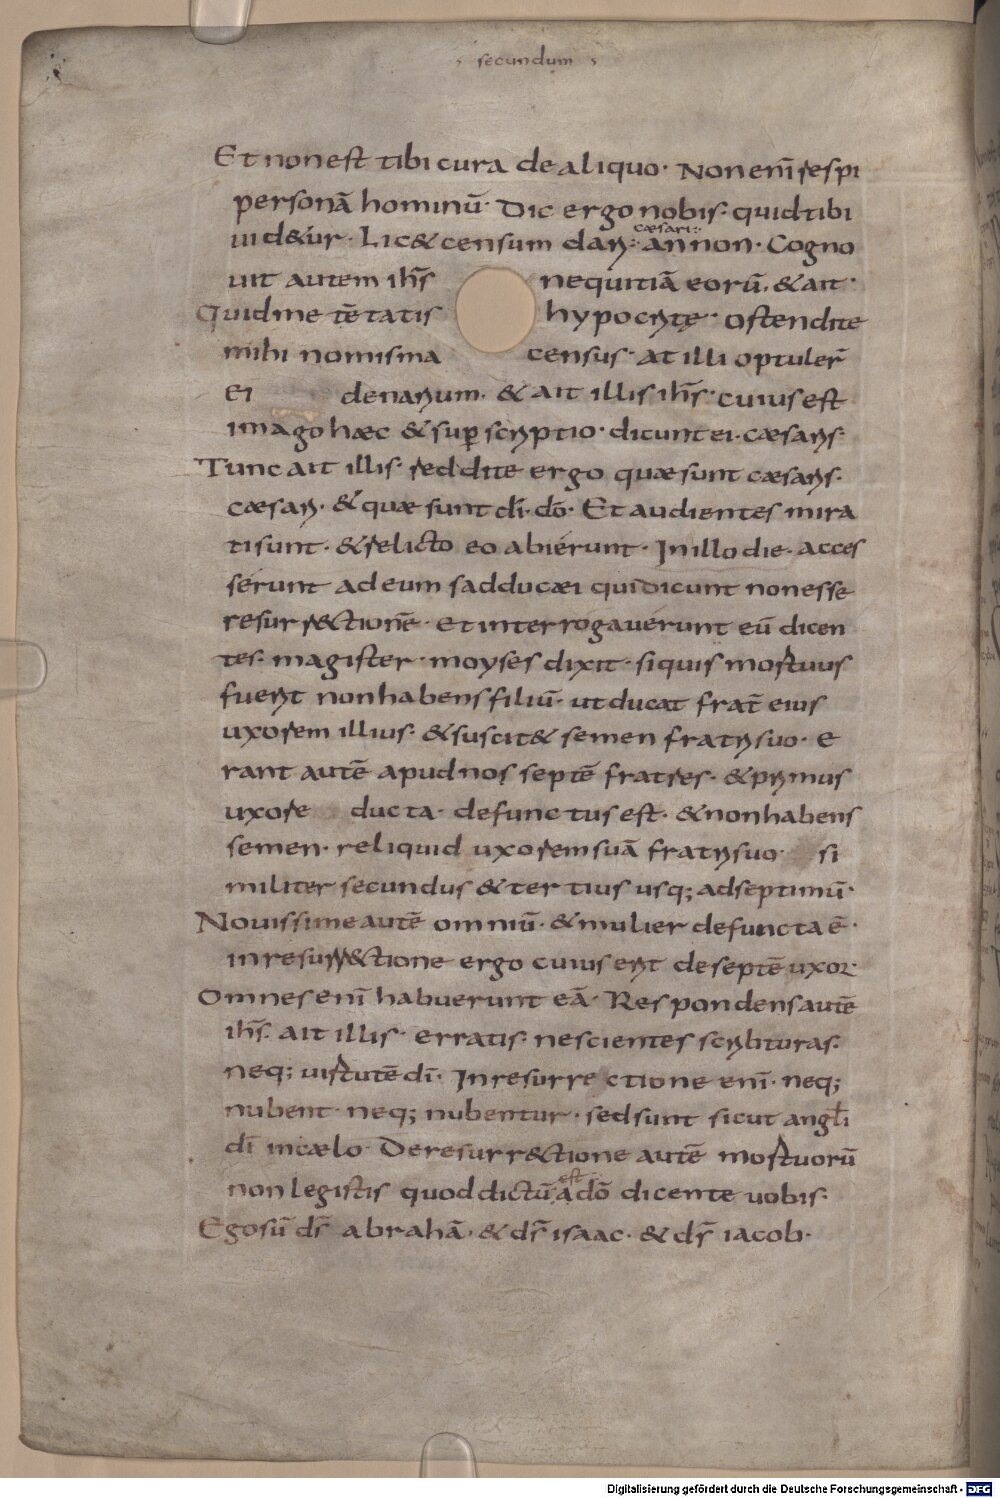 secundum
Et non est tibi cura de aliquo· Non enī respi
personā hominū· Dic ergo nobis· quid tibi
cæsari
uid&ur· Lic& censum dari· an non· Cogno
uit autem ih̄s nequitiā eorū, & ait·
Quid me tēptatis hypocritę· ostendite
mihi nomisma census· at illi optuler̄
ei denarium· & ait illis ih̄s· cuius est
imago hæc & sup̱scriptio· dicunt ei· cæsaris·
Tunc ait illis· reddite ergo quæ sunt cæsaris·
cæsari· & quæ sunt dī· dō· Et audientes mira
ti sunt· & relicto eo abierunt· In illo die· acces
serunt ad eum sadducæi qui dicunt non esse
resurr&ctionē· et interrogauerunt eū dicen
tes· magister· moyses dixit· si quis mortuus
fuerit non habens filiū· ut ducat frat̄ eius
uxorem illius· & suscit& semen fratri suo· E
rant autē apud nos septē fratres· & primus
uxore ducta· defunctus est· & non habens
semen· reliquid uxorem suā fratri suo si
militer secundus & tertius usq; ad septimū·
Nouissime autē omniū· & mulier defuncta ē·
in resurr&ctione ergo cuius erit de septē uxor·
Omnes enī habuerunt eā· Respondens autē
ih̄s· ait illis· erratis· nescientes scribturas·
neq; uirtutē dī· In resurrectione enī· neq;
nubent· neq; nubentur· sed sunt sicut angłi
dī in cælo· De resurr&ctione autē mortuorū
est
non legistis quod dictū a dō dicente uobis·
Ego sū ds̄ abrahā· & ds̄ isaac· & ds̄ iacob·
Digitalisierung gefördert durch die Deutsche Forschungsgemeinschaft - DFG